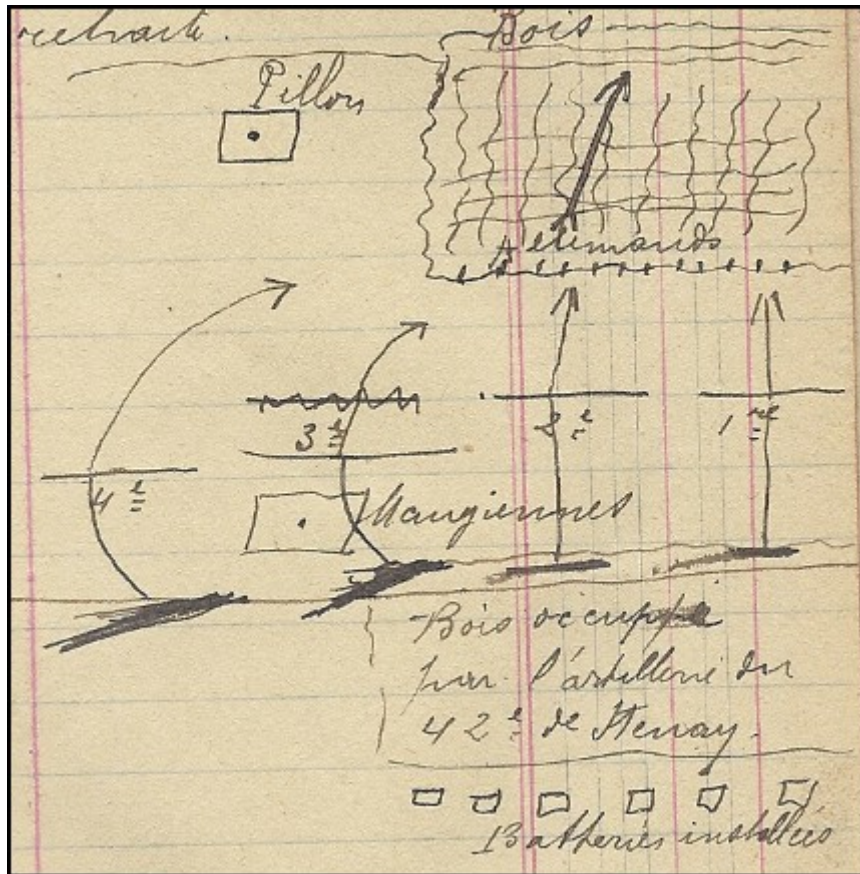 retraite.
Bois
Pillon
Allemands
3e
2e
1re
4e
Mangiennes
Bois occuppé
par l'artillerie du
42e de Stenay.
Batteries installées